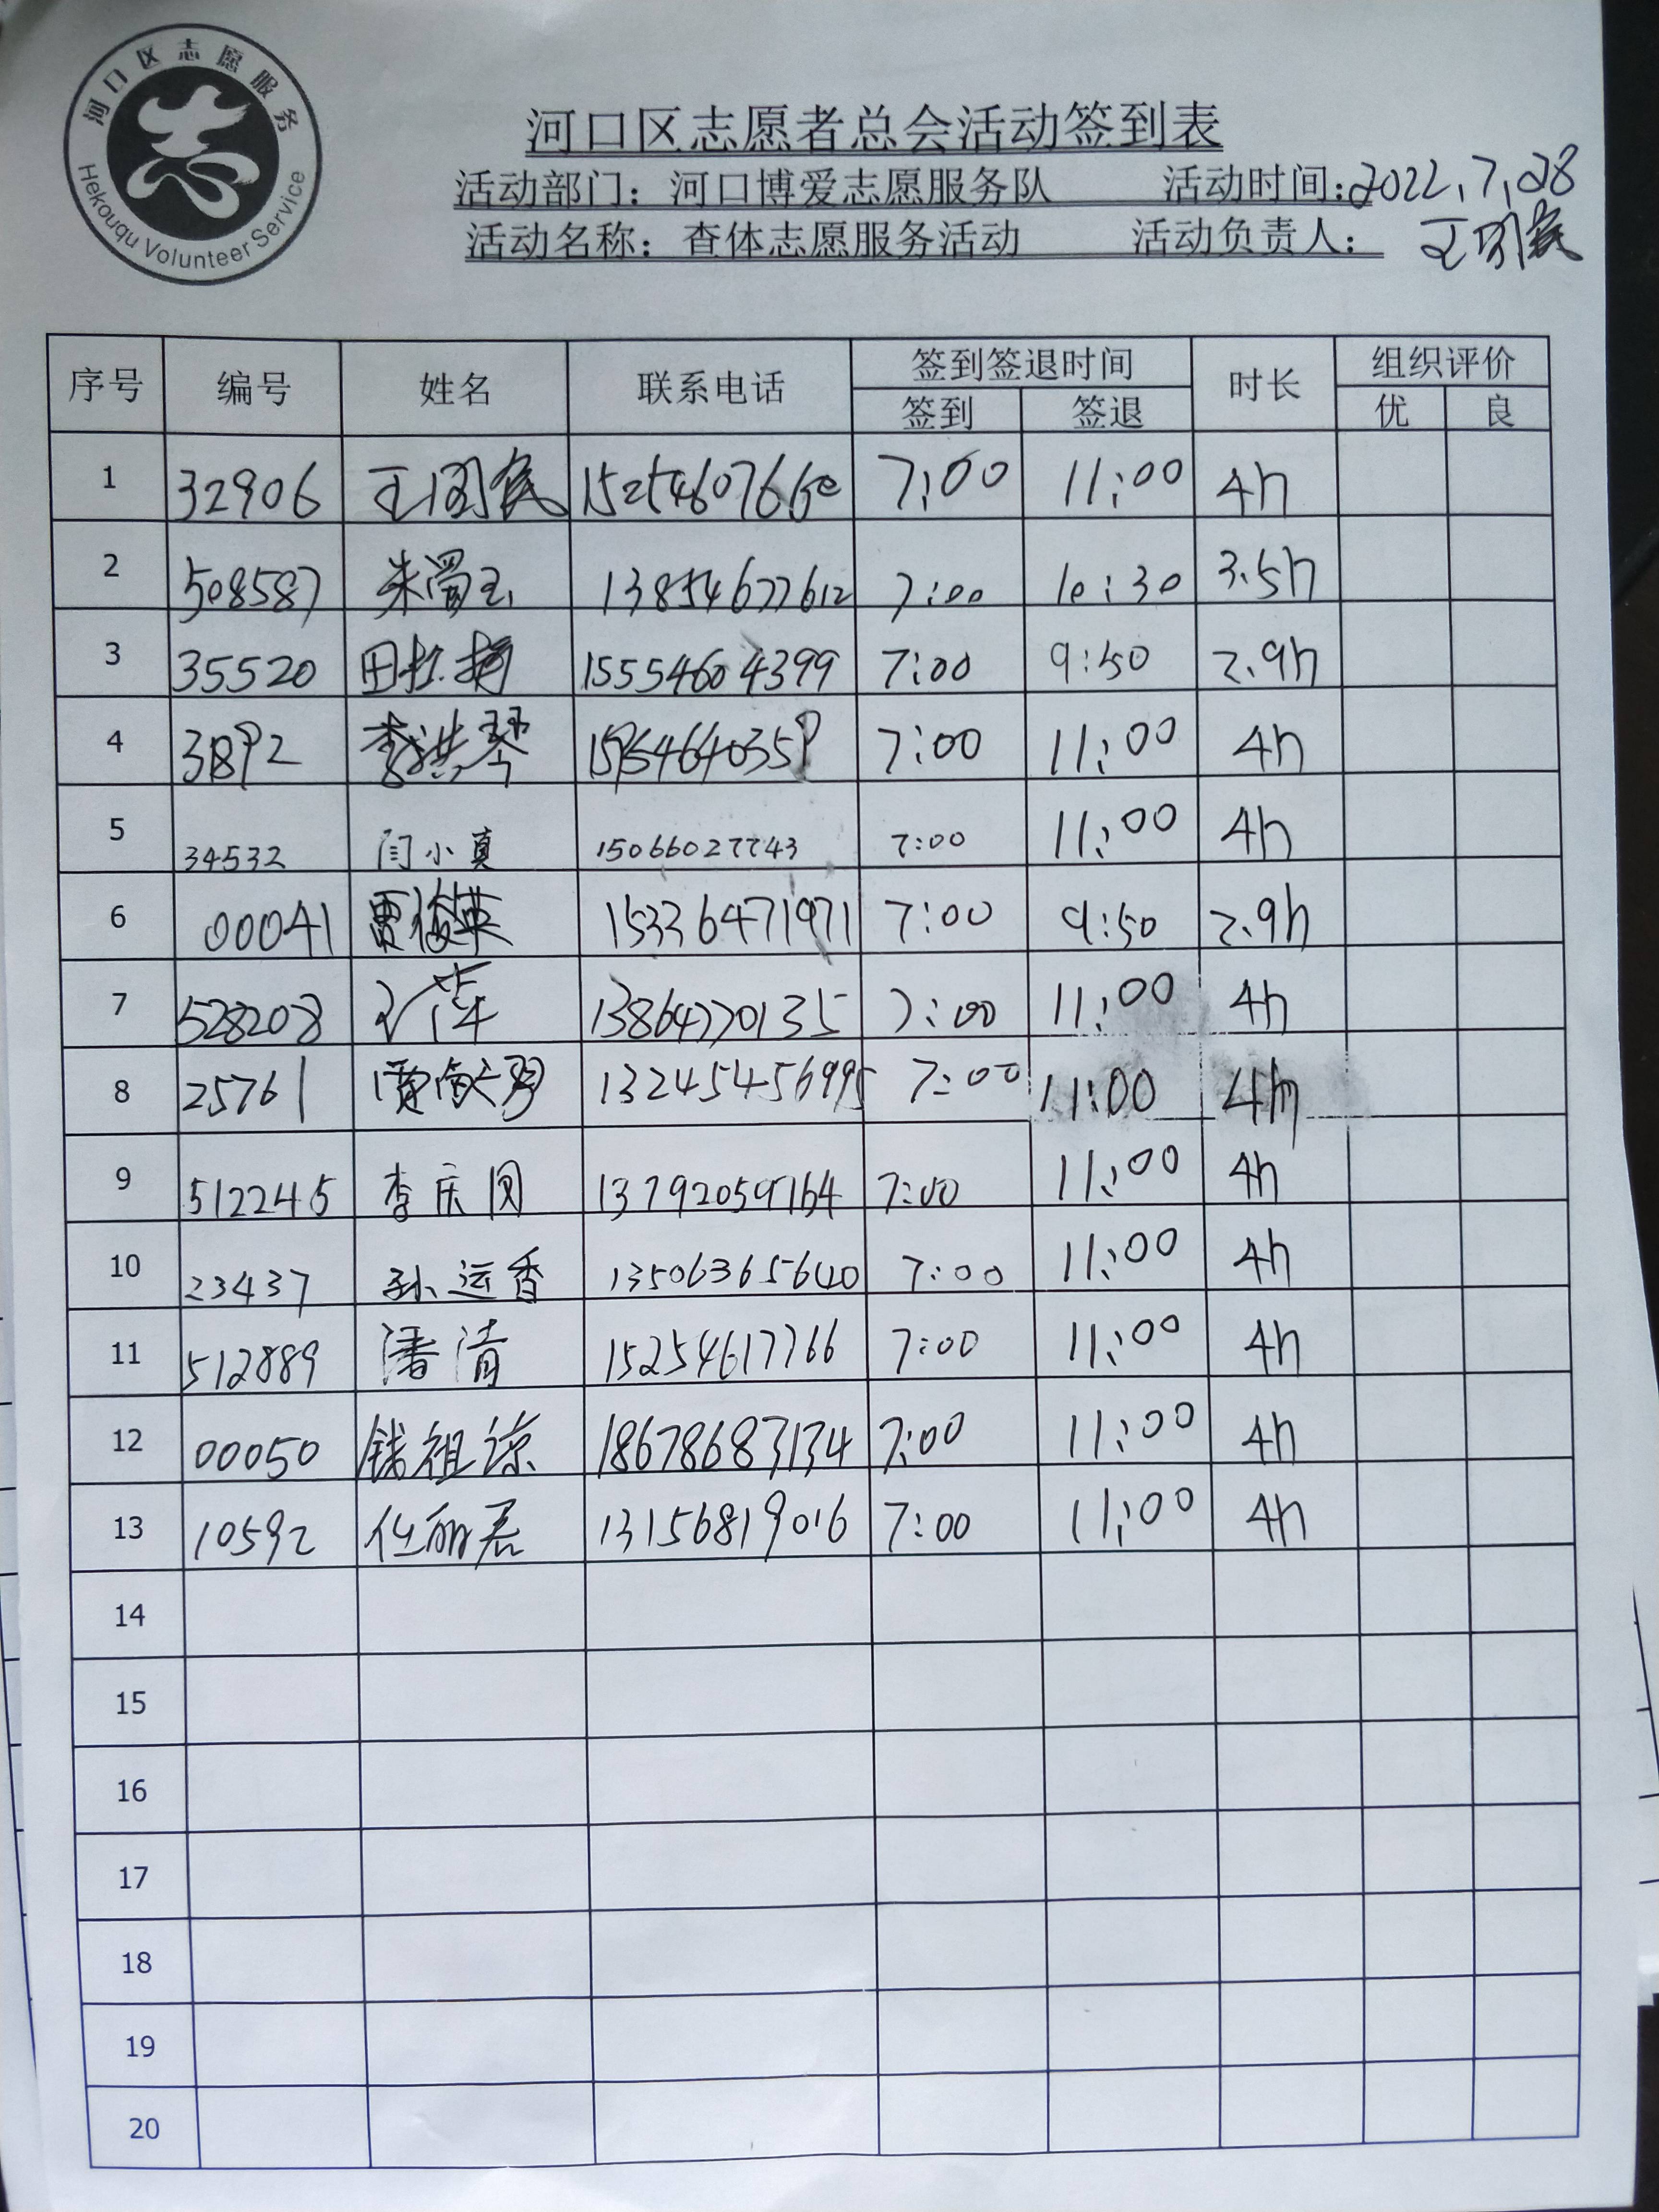 河口区志愿服务
Hekouqu Volunteer Service
河口区志愿者总会活动签到表
活动部门：河口博爱志愿服务队 活动时间：2022.7.28
活动名称：查体志愿服务活动 活动负责人：
序号 编号 姓名 联系电话 签到签退时间 时长 组织评价
签到 签退 优 良
1 32906 15254607660 7:00 11:00 4h
2 508587 13854677612 7:00 10:30 3.5h
3 35520 15554604399 7:00 9:50 2.9h
4 3892 李洪琴 7:00 11:00 4h
5 34532 闫小真 15066027743 7:00 11:00 4h
6 00041 贾俊英 15336471971 7:00 9:50 2.9h
7 528208 13864770135 7:00 11:00 4h
8 25761 13245456995 7:00 11:00 4h
9 512245 李庆圆 7:00 11:00 4h
10 23437 孙运香 13506365640 7:00 11:00 4h
11 512889 潘清 15254617766 7:00 11:00 4h
12 00050 钱祖凉 18678683134 7:00 11:00 4h
13 10592 任丽君 13156819016 7:00 11:00 4h
14
15
16
17
18
19
20